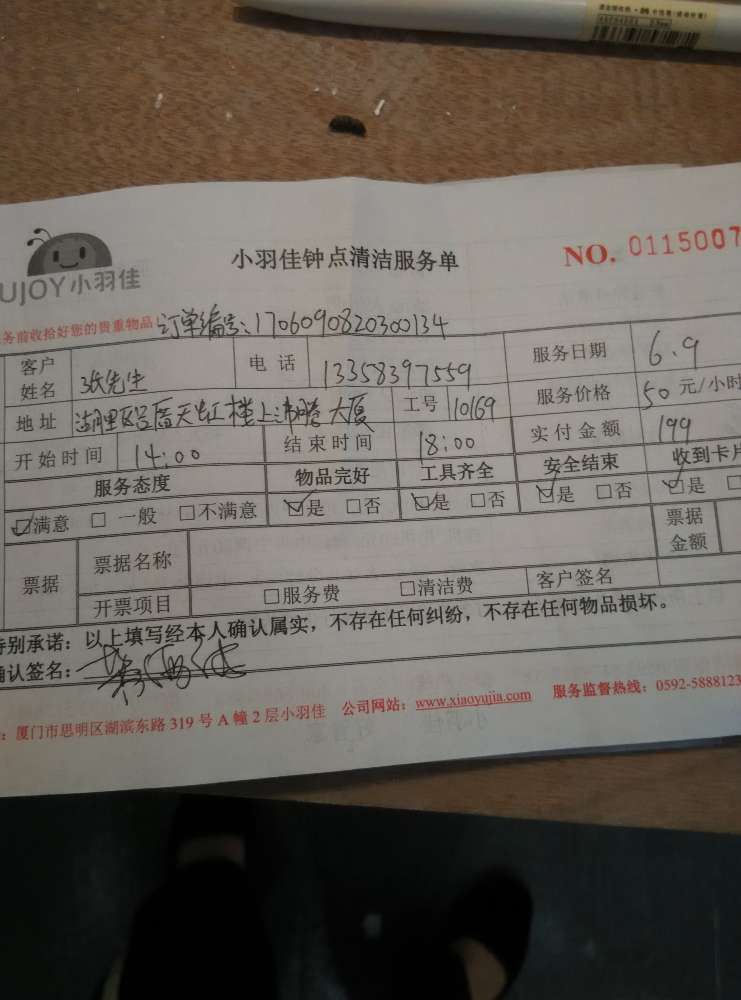 小羽佳钟点清洁服务单
NO. 0115007
UJOY小羽佳
务前收拾好您的贵重物品！订单编号：1706090820300134
客户姓名 张先生 电话 13358397559 服务日期 6.9
地址 湖里区 大厦 工号 10169 服务价格 50 元/小时
开始时间 14:00 结束时间 18:00 实付金额 199
服务态度 物品完好 工具齐全 安全结束 收到卡片
☑满意 □一般 □不满意 ☑是 □否 ☑是 □否 ☑是 □否 ☑是 □
票据 票据名称 票据金额
开票项目 □服务费 □清洁费 客户签名
特别承诺：以上填写经本人确认属实，不存在任何纠纷，不存在任何物品损坏。
确认签名：
：厦门市思明区湖滨东路 319 号 A 幢 2 层小羽佳 公司网站：www.xiaoyujia.com 服务监督热线：0592-5888123